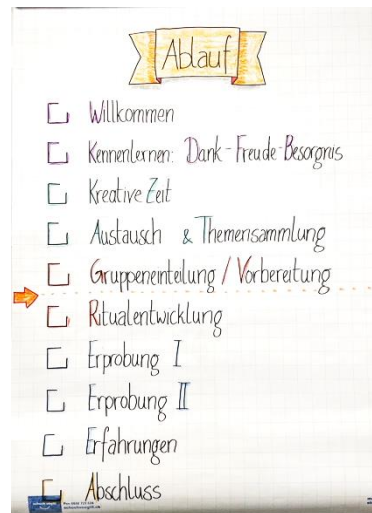 Ablauf
Willkommen
Kennenlernen: Dank-Freude-Besorgnis
Kreative Zeit
Austausch & Themensammlung
Gruppeneinteilung / Vorbereitung
Ritualentwicklung
Erprobung I
Erprobung II
Erfahrungen
Abschluss